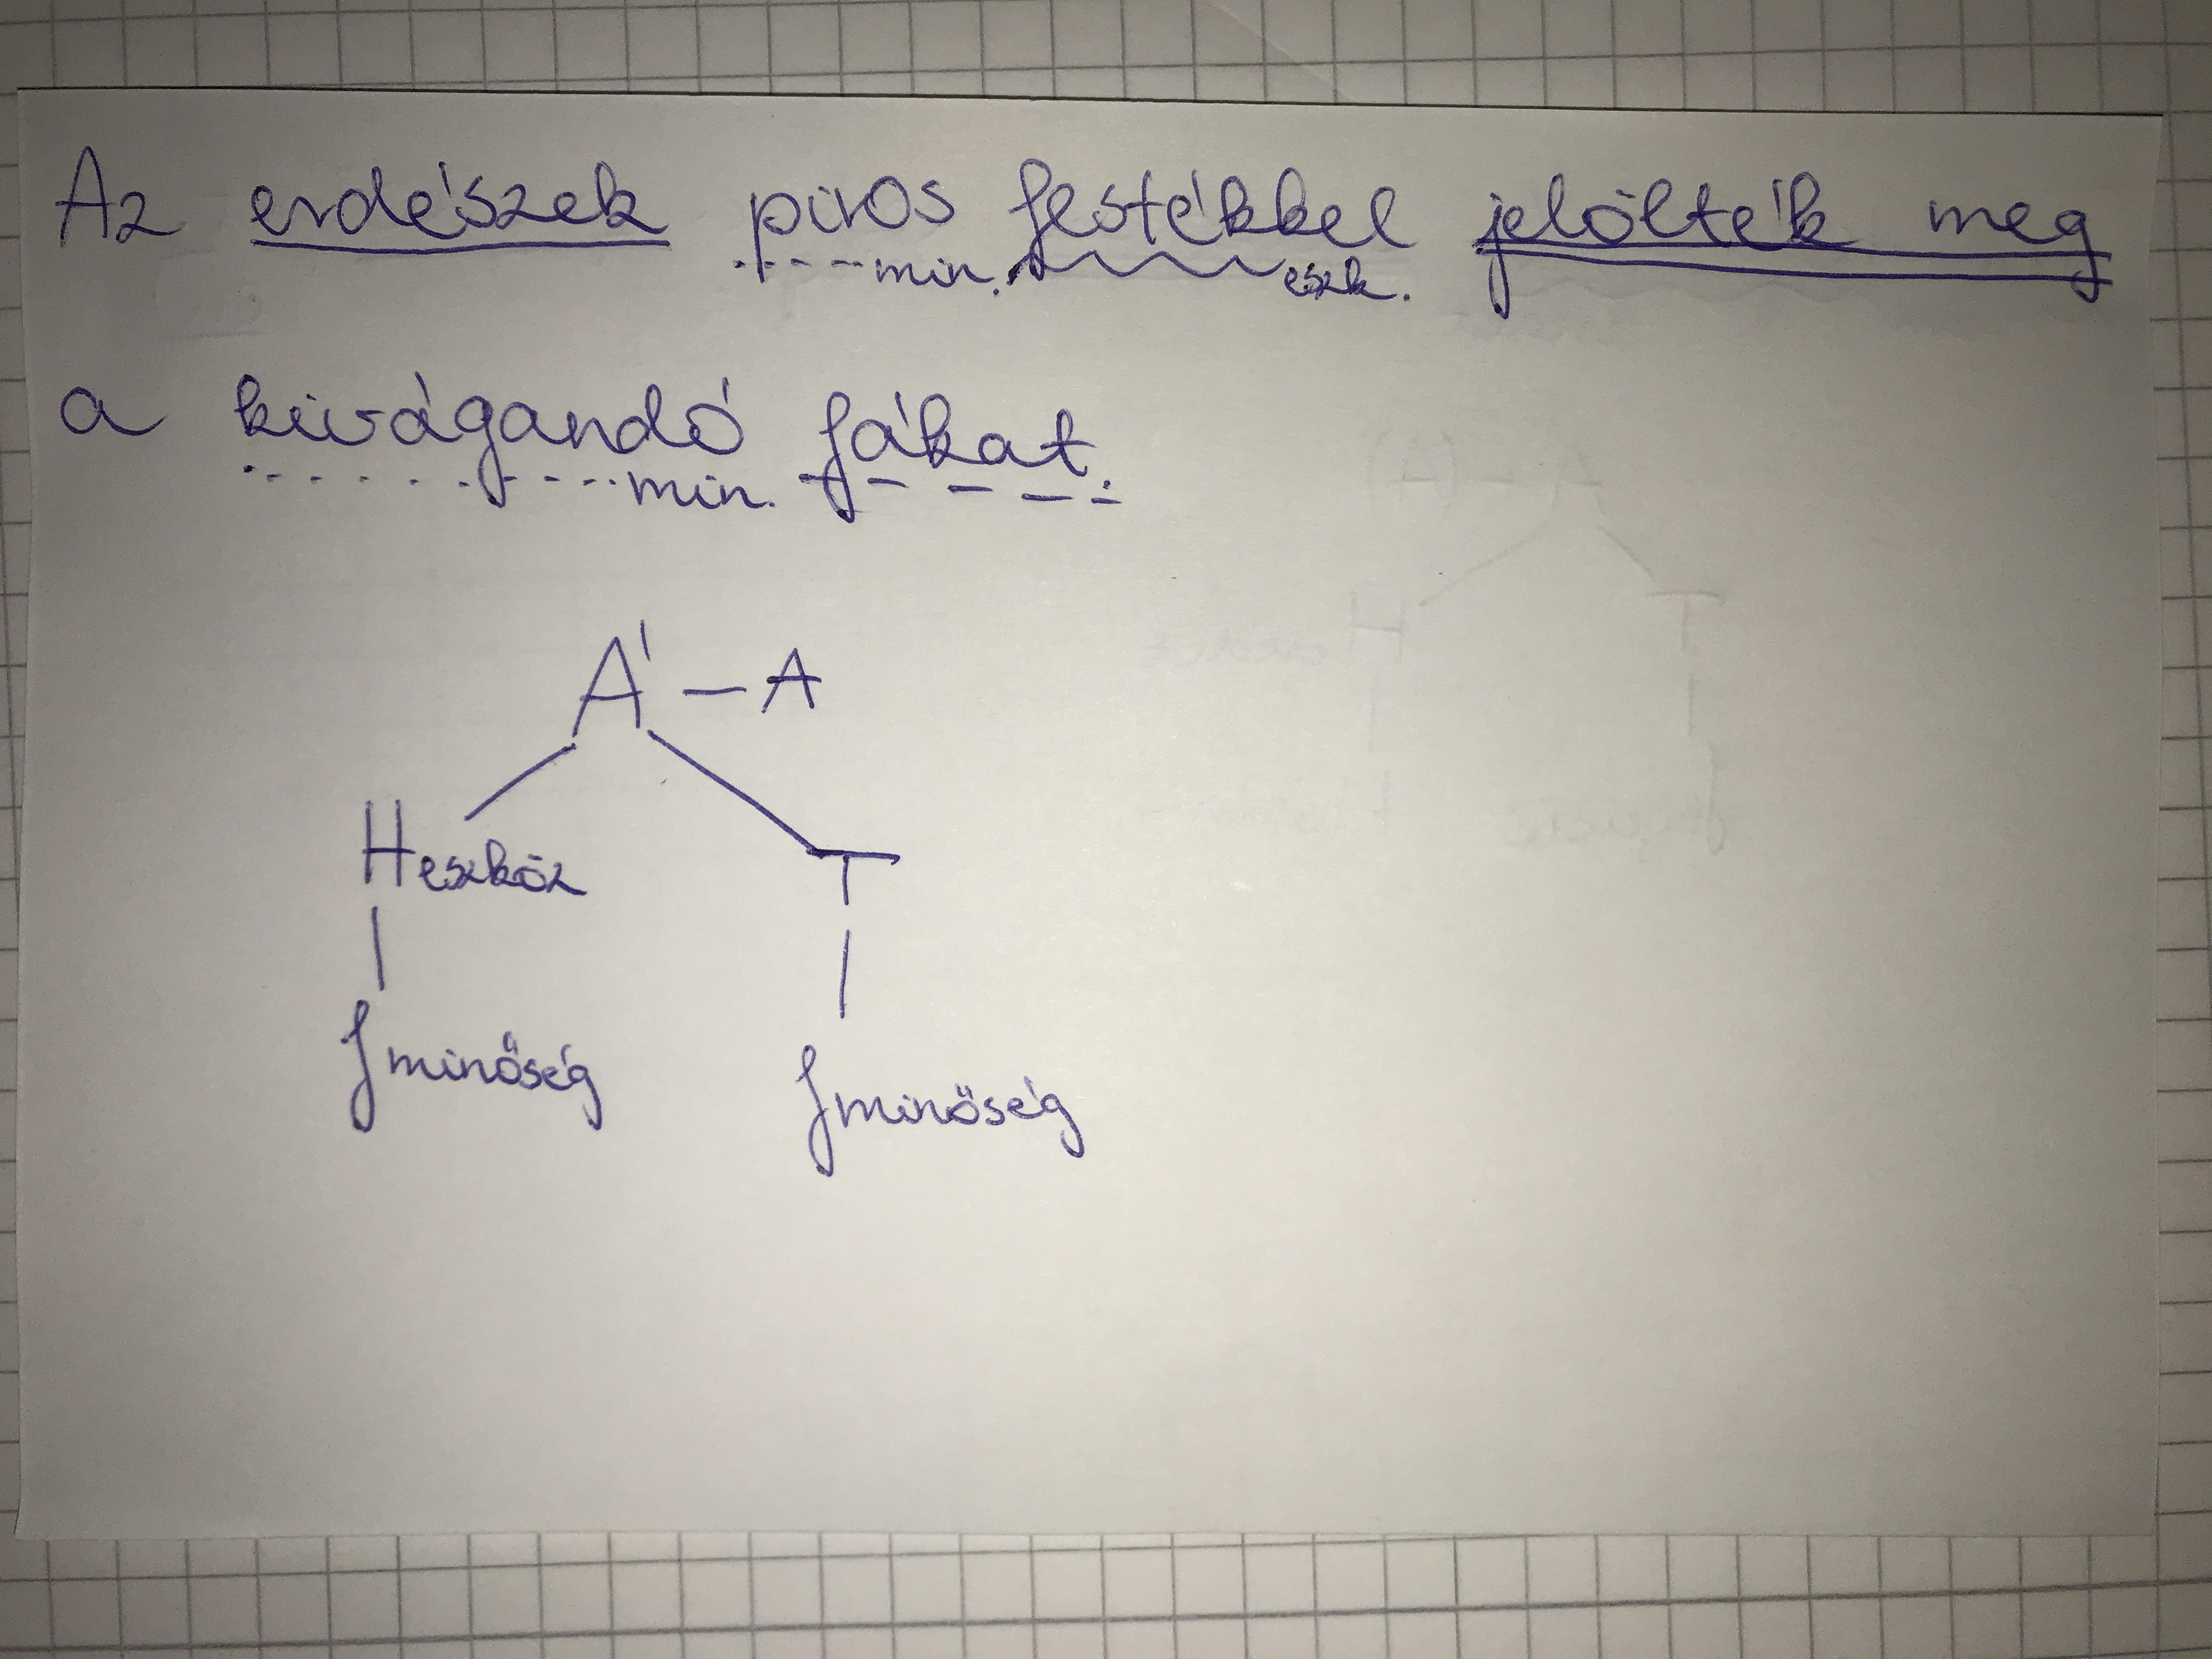 Az erdészek piros festékkel jelölték meg
min. eszk.
a kivágandó fákat.
min.
Á – A
Heszköz T
Jminőség Jminőség